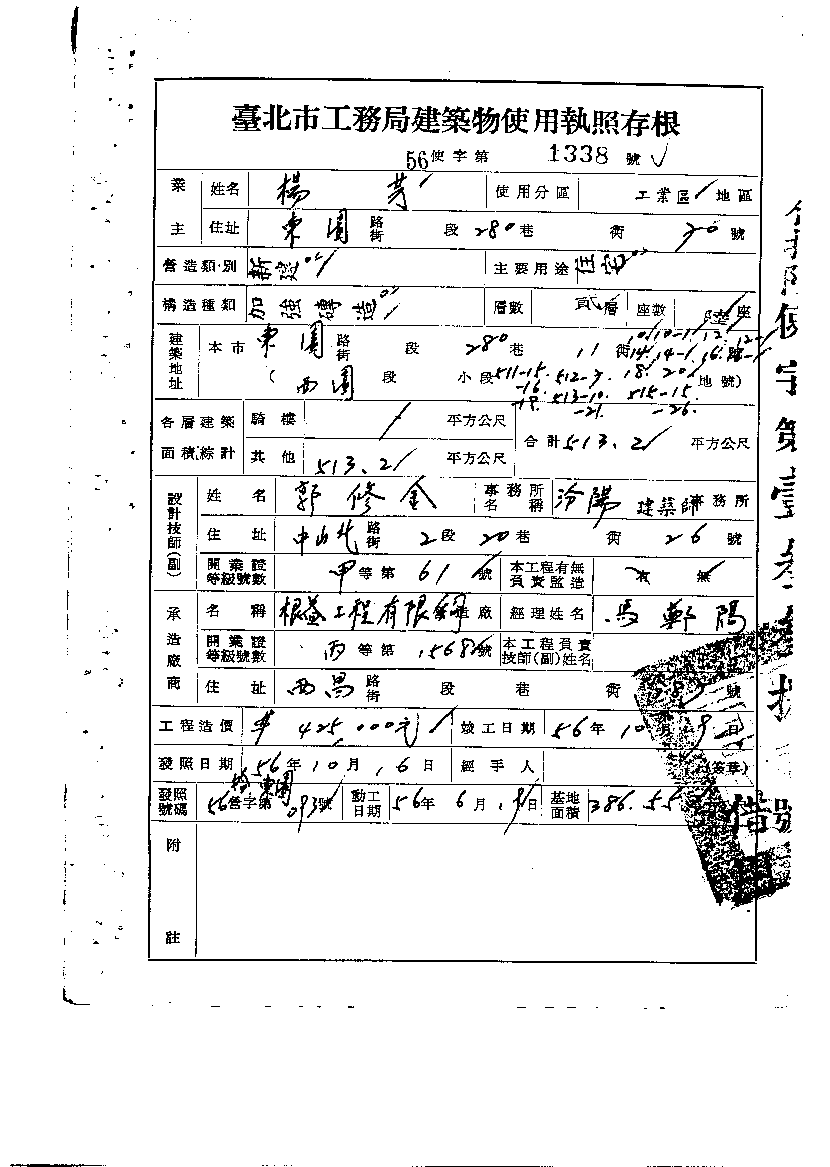 臺北市工務局建築物使用執照存根
56使字第 1338 號
業主 姓名 楊 芳 使用分區 工業區 地區
住址 東園 路街 段 280 巷 衖 20 號
營造類別 新建 主要用途 住宅
構造種類 加強磚造 層數 貳層 座數 陸座
建築地址 本市 東園 路街 段 280 巷 11 衖 10.10-1. 12. 12-1
14. 14-1. 16. 號
(西園 段 小段 511-15 512-3. 18. 20. 地號)
-16. 513-10. 515-15
-18. -21. -26.
各層建築面積綜計 騎樓 平方公尺 合計 513.2 平方公尺
其他 513.2 平方公尺
設計技師(副) 姓名 郭修金 事務所名稱 汾陽 建築師事務所
住址 中山北 路街 2 段 20 巷 衖 26 號
開業證等級號數 甲 等第 61 號 本工程有無負責監造 有 無
承造廠商 名稱 根益工程有限 造廠 經理姓名 馬 陽
開業證等級號數 丙 等第 1568 號 本工程負責技師(副)姓名
住址 西昌 路街 段 巷 衖 號
工程造價 $ 425,000元 竣工日期 56年 10月 9日
發照日期 56年 10月 16日 經手人 (簽章)
發照號碼 56營字第 093號 動工日期 56年 6月 9日 基地面積 386.55
附註
使字第壹叁
借
號